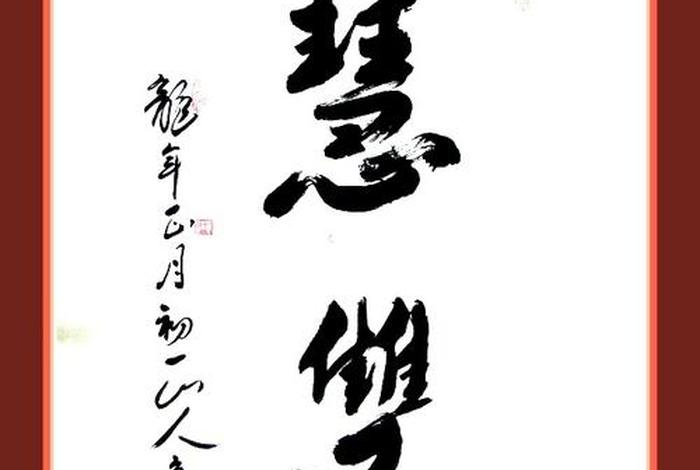 慧雙
龍年正月初一山人